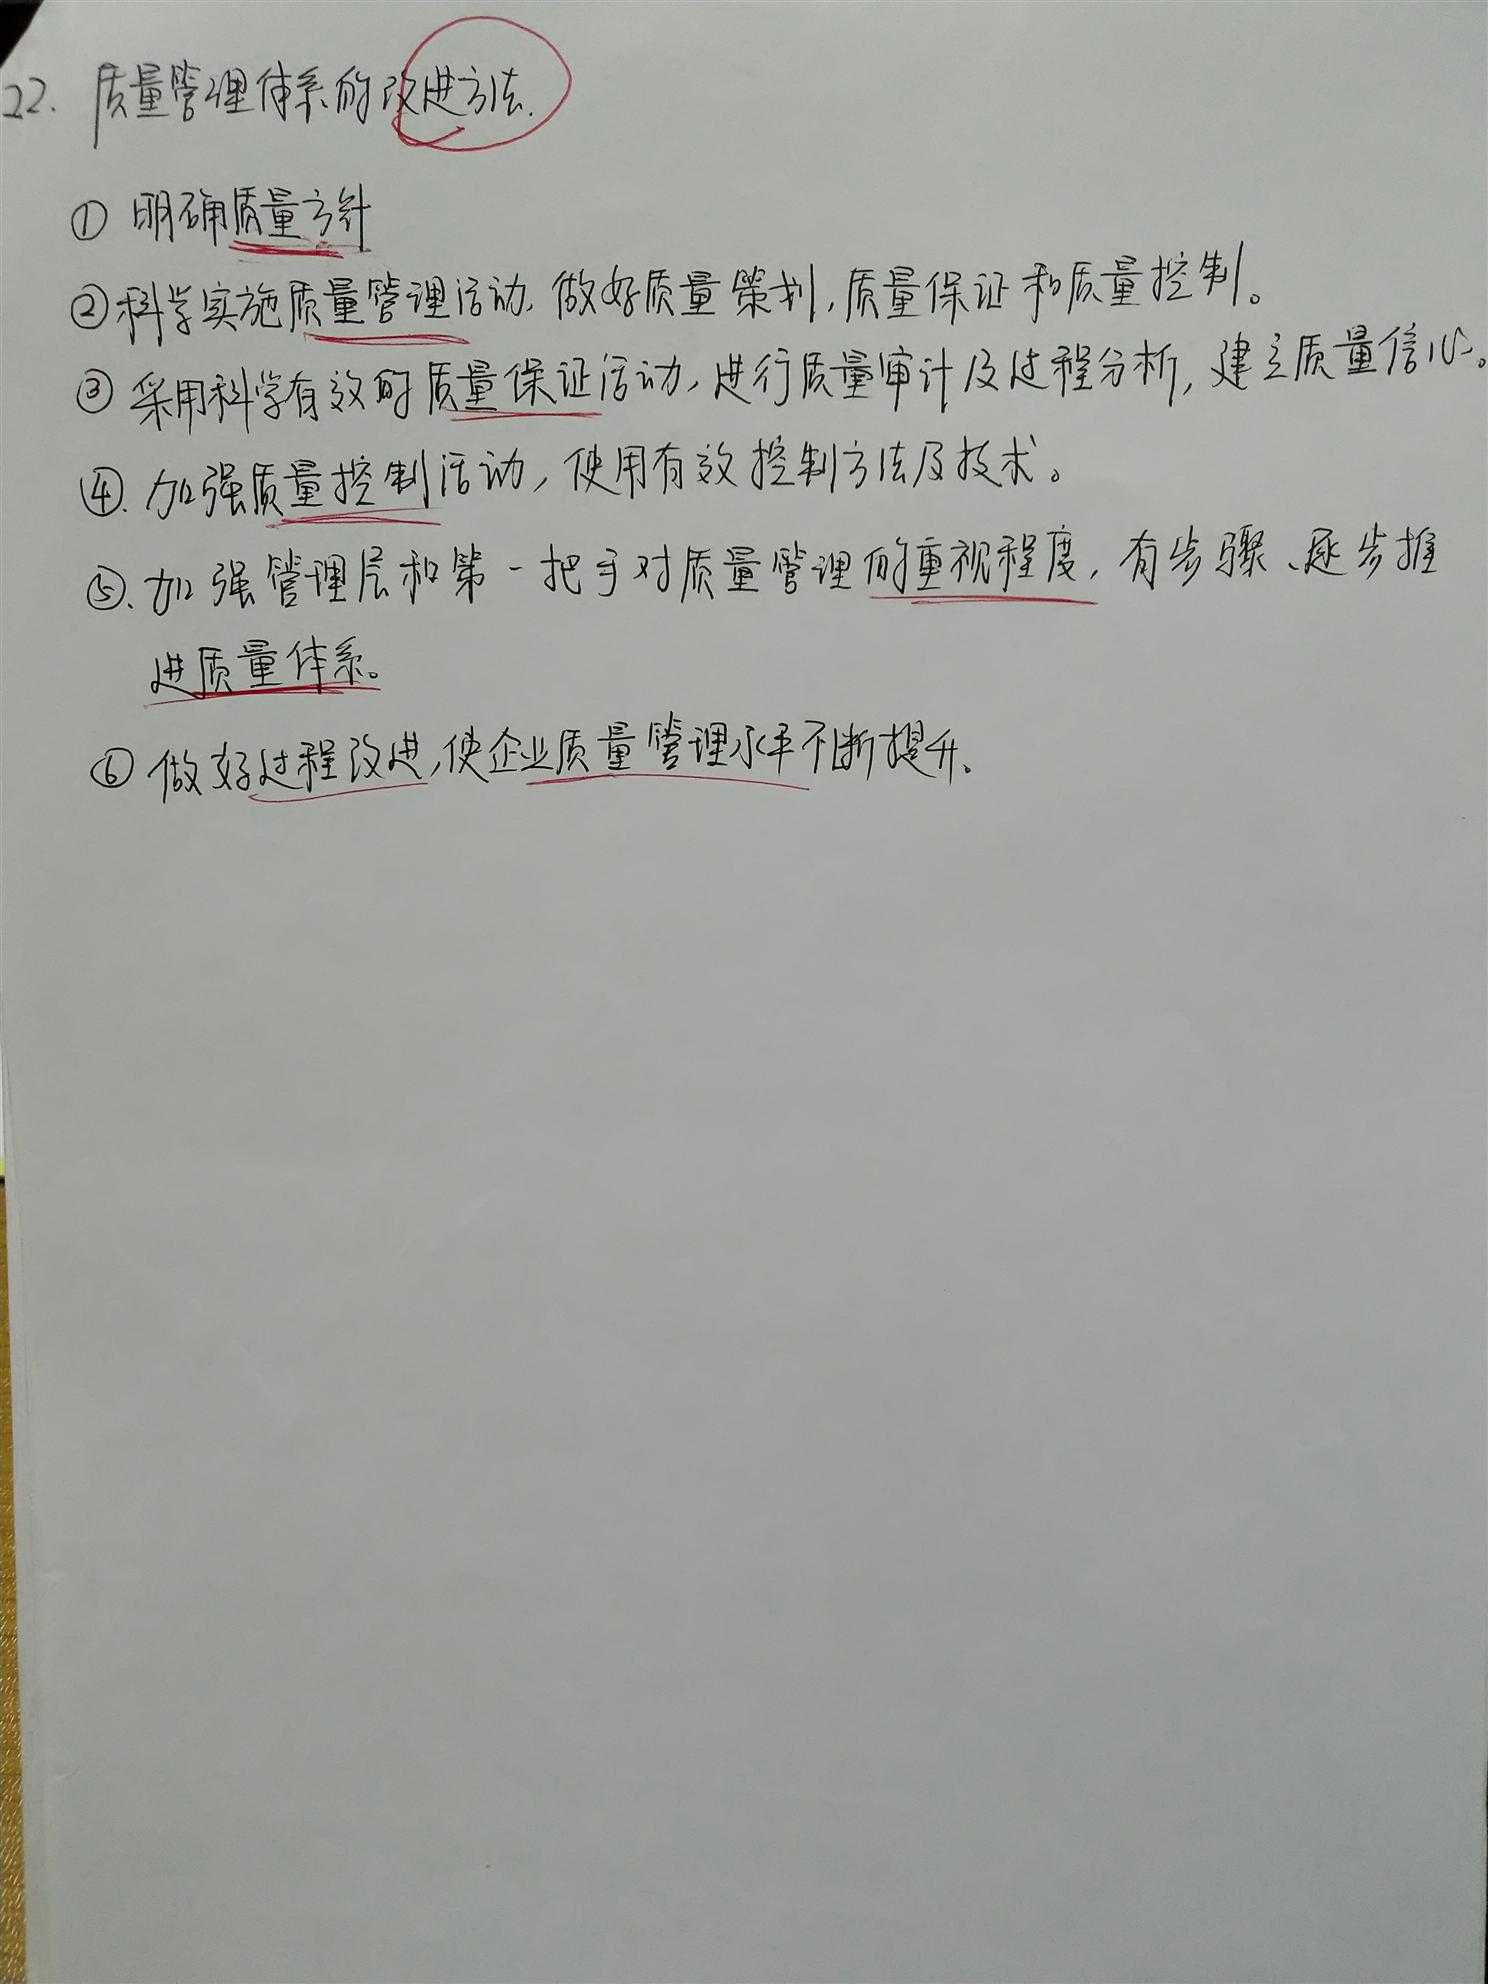 22. 质量管理体系的改进方法.
① 明确质量方针
② 科学实施质量管理活动, 做好质量策划, 质量保证和质量控制。
③ 采用科学有效的质量保证活动, 进行质量审计及过程分析, 建立质量信心。
④. 加强质量控制活动, 使用有效控制方法及技术。
⑤. 加强管理层和第一把手对质量管理的重视程度, 有步骤、逐步推
进质量体系。
⑥ 做好过程改进, 使企业质量管理水平不断提升。